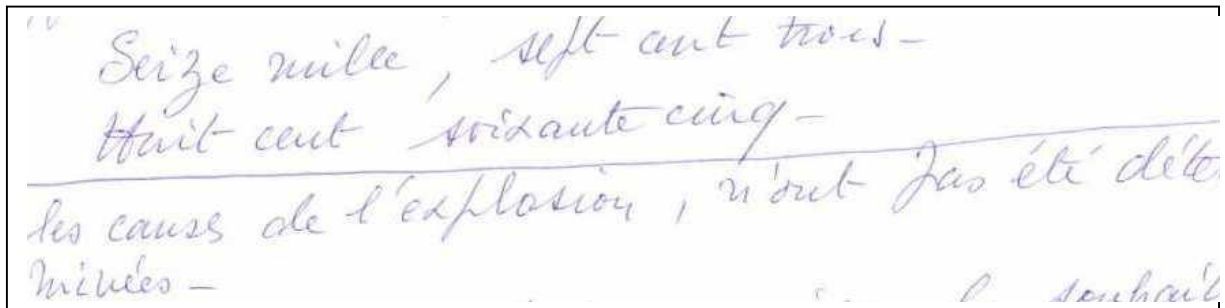 Seize mille, sept cent trois-
Huit cent soixante cinq-
les causes de l'explosion, n'ont pas été déter
minées-
souhait